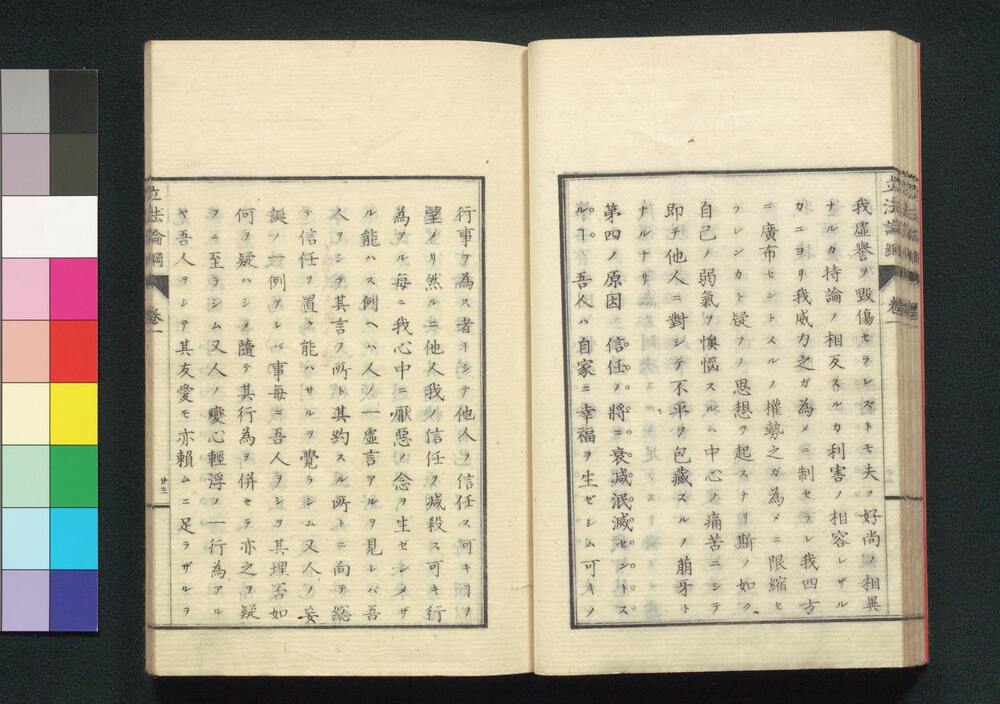 立法論綱 卷一
我虛譽ヲ毀傷セラレズトモ夫ヲ好尚ノ相異
ナルカ持論ノ相反スルカ利害ノ相容レザル
カニヨリ我威力之ガ為メニ制セラレ我四方
ニ廣布セントスルノ權勢之ガ為メニ限縮セ
ラレンカト疑フノ思想ヲ起スナリ斯ノ如ク
自己ノ弱氣ヲ懊惱スルハ中心ノ痛苦ニシテ
即チ他人ニ對シテ不平ヲ包藏スルノ萠牙ト
ナルナリ
第四ノ原因 信任ノ將ニ衰减泯滅セントス
ルヿ 吾人ハ自家ニ幸福ヲ生ゼシム可キノ
行事ヲ為ス者ニシテ他人ヲ信任ス可キヲ
望メリ然ルニ他人我ノ信任ヲ减殺ス可キ行
為アル每ニ我心中ニ厭惡ノ念ヲ生ゼシメザ
ル能ハス例ヘハ人ノ一虛言アルヲ見レバ吾
人ヲシテ其言フ所ト其約スル所トニ向テ總
テ信任ヲ置ク能ハサルヲ覺ラシム又人ノ妄
誕ノ一例アレバ事每ニ吾人ヲシテ其理否如
何ヲ疑ハシメ隨テ其行為ヲ併セテ亦之ヲ疑
フニ至ラシム又人ノ變心輕浮ノ一行為アル
ヤ吾人ヲシテ其友愛モ亦賴ムニ足ラザルヲ
立法論綱 卷一 廿三